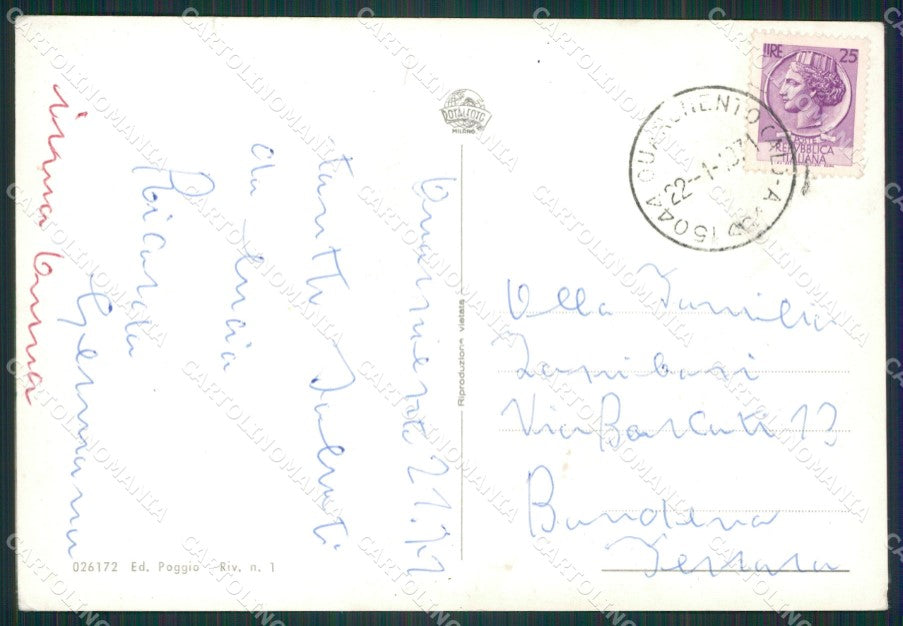 Quargnento 21.1.71
tanti Saluti
da Lucia
Ricarda
Germana
irma Anna
026172 Ed. Poggio - Riv. n. 1
ROTALFOTO
MILANO
Riproduzione vietata
LIRE 25
POSTE
REPUBBLICA
ITALIANA
15044 QUARGNENTO
22-1-1971
Alla Famiglia
Zaniboni
Via 13
Bondeno
Ferrara
CARTOLINOMANIA